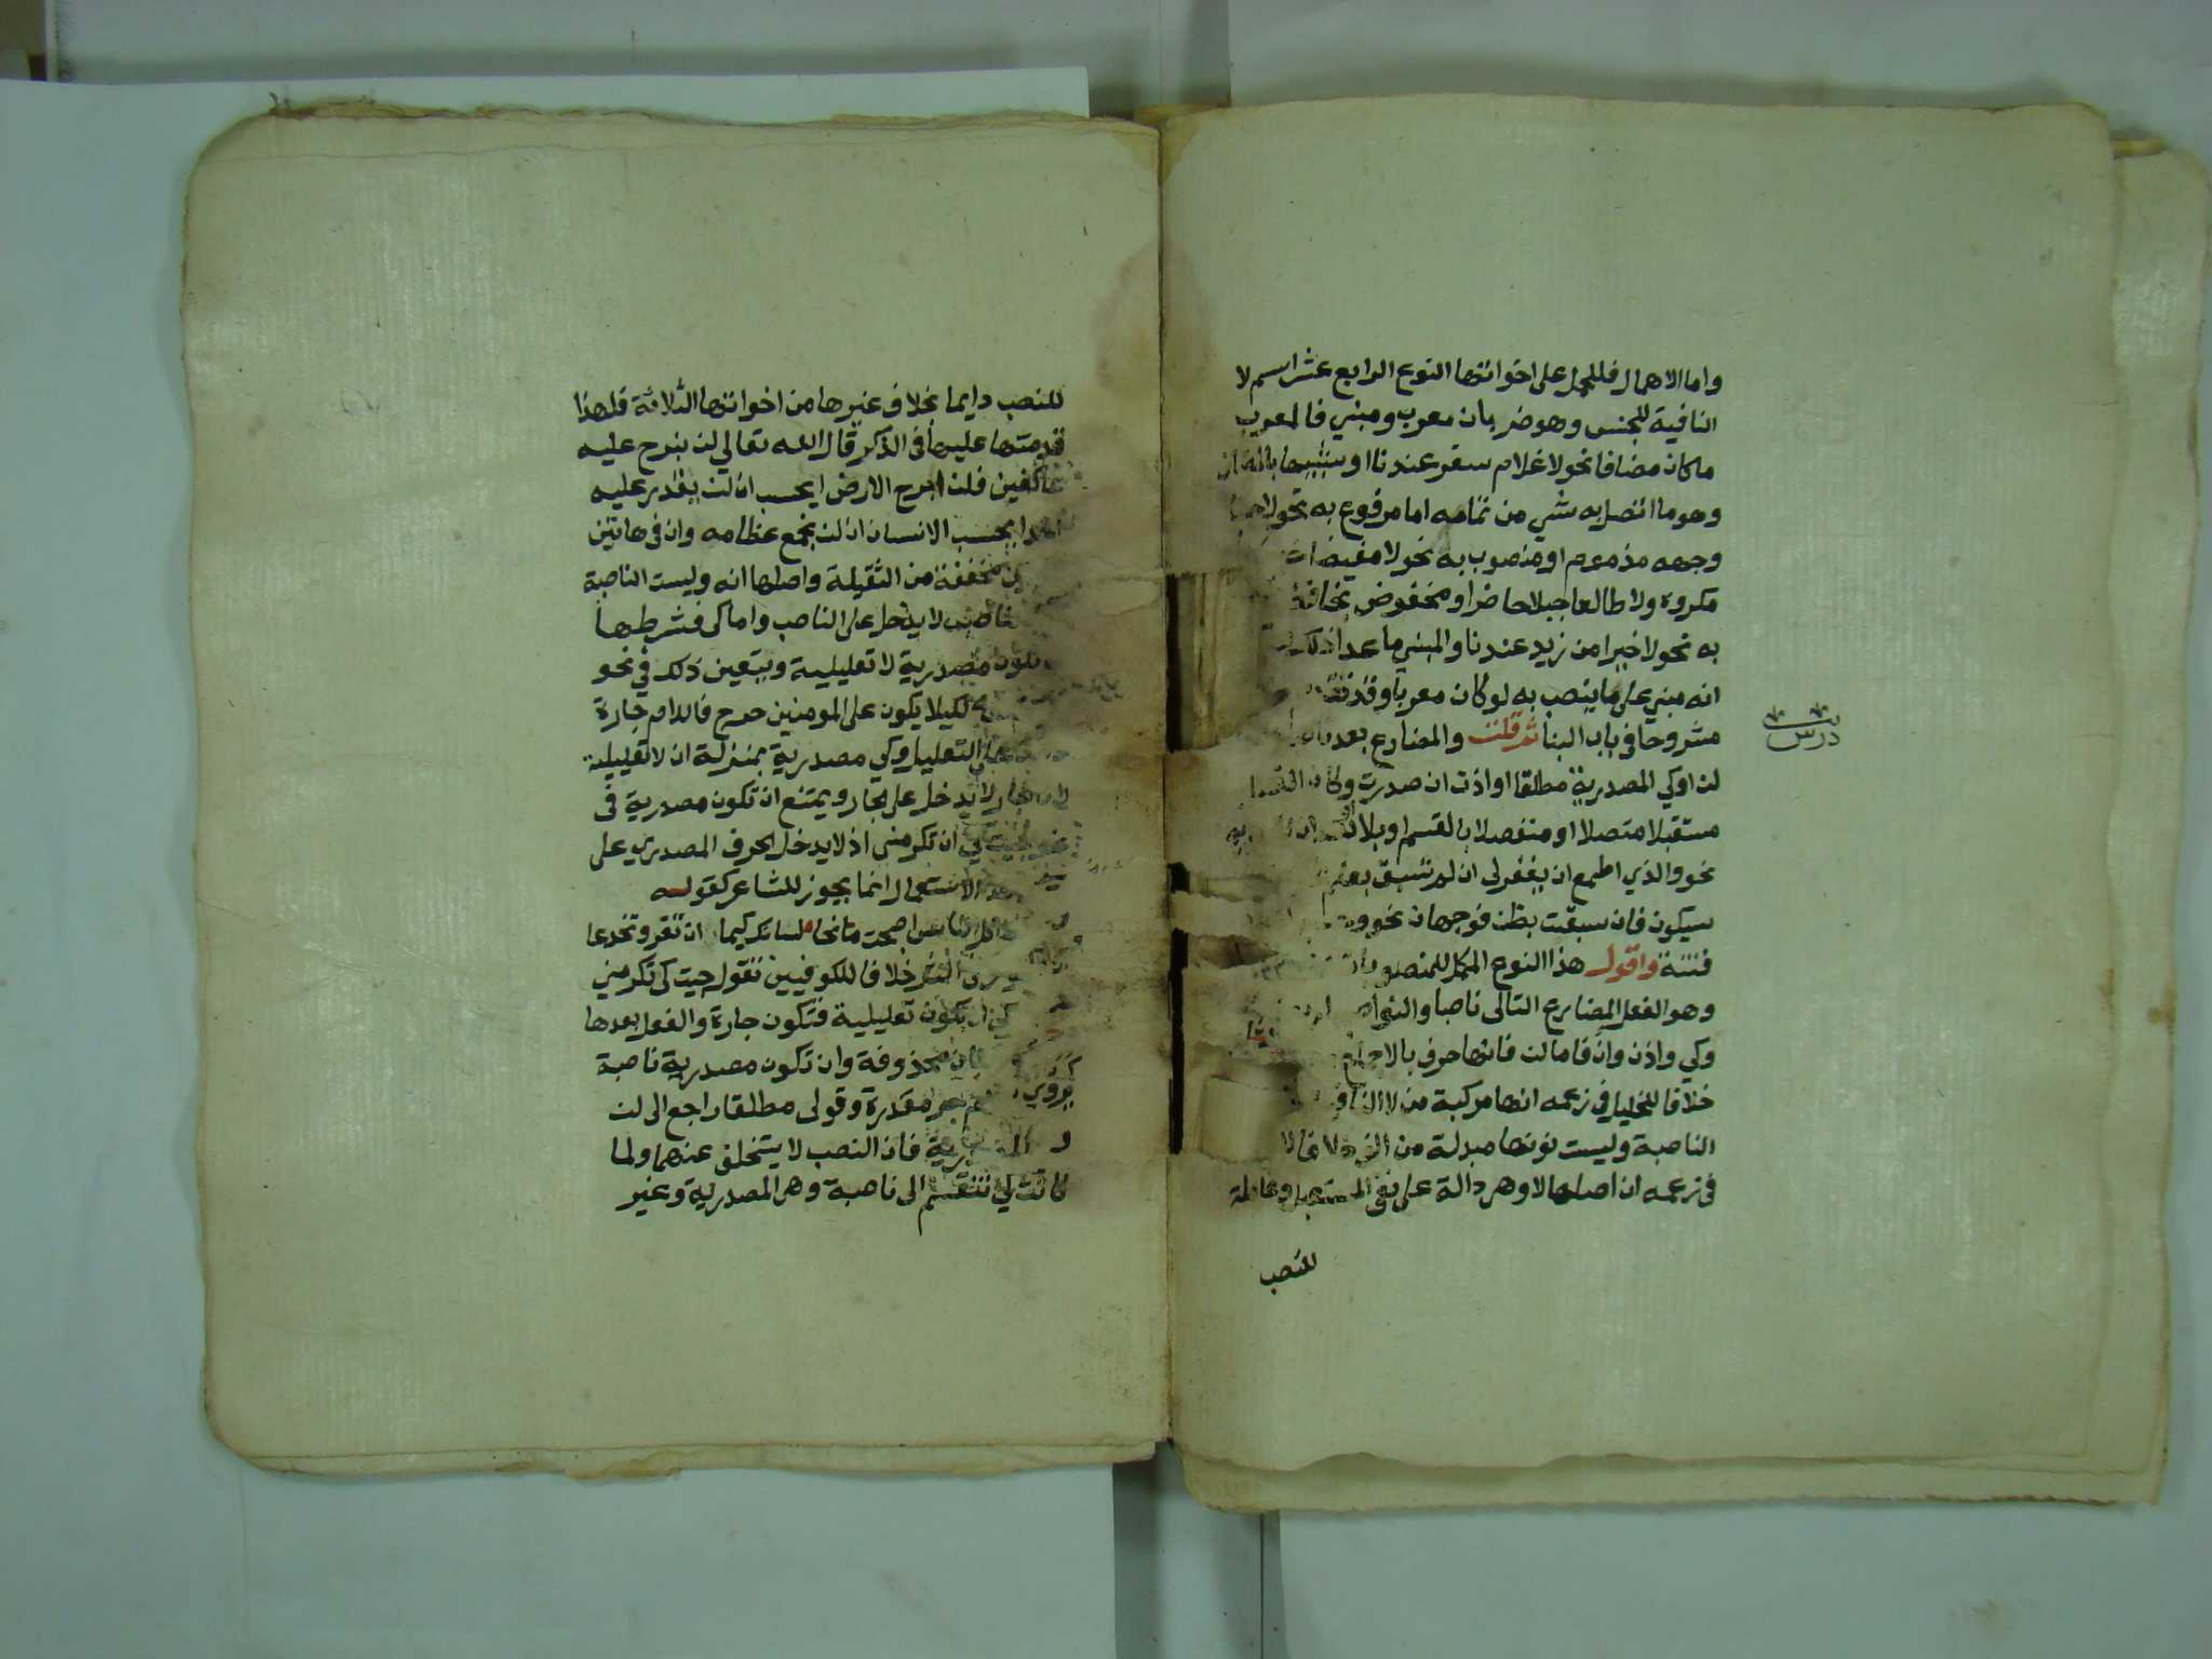 واما الاهمال فللحمل على اخواتها النوع الرابع عشر اسم لا
النافية للجنس وهو ضربان معرب ومبني فالمعرب
ماكان مضافا نحو لا غلام سفر عندنا او شبيها بالمضاف
وهو ما اتصل به شي من تمامه اما مرفوع به نحو لا حسنا
وجهه مذموم او منصوب به نحو لا مفيضا
مكروه ولا طالعا جبلا حاضر او مخفوض بخافض
به نحو لا خيرا من زيد عندنا والمبني ما عدا ذلك
انه مبني على ما ينصب به لو كان معربا وقد تقدم
مشروحا في باب البنا ثم قلت والمضارع بعد ناصب
درس
لن او كي المصدرية مطلقا او اذن ان صدرت وكان الفعل
مستقبلا متصلا او منفصلا بالقسم او بلا او
نحو والذي اطمع ان يغفر لي ان لم تسبق بعلم
سيكون فان سبقت بظن فوجهان نحو
فتنة واقول هذا النوع المكمل للمنصوبات
وهو الفعل المضارع التالي ناصبا والنواصب
وكي واذن وان فاما لن فانها حرف بالاجماع
خلافا للخليل في زعمه انها مركبة من لا النافية
الناصبة وليست نونها مبدلة من الف خلافا
في زعمه ان اصلها لا وهي دالة على نفي المستقبل وعاملة
للنصب
للنصب دايما بخلاف غيرها من اخواتها الثلاثة فلهذا
قدمتها عليها في الذكر قال الله تعالي لن نبرح عليه
عاكفين فلن ابرح الارض ايحسب ان لن يقدر عليه
احد ايحسب الانسان ان لن نجمع عظامه وان في هاتين
مخففة من الثقيلة واصلها انه وليست الناصبة
لا يدخل على الناصب واما كي فشرطها
تكون مصدرية لا تعليلية ويتعين ذلك في نحو
لكيلا يكون على المومنين حرج فاللام جارة
التعليل وكي مصدرية بمنزلة ان لا تعليلية
الجار لا يدخل على الجار ويمتنع ان تكون مصدرية في
نحو جيت كي ان تكرمني اذ لا يدخل الحرف المصدري على
الاستعمال انما يجوز للشاعر كقوله
الناس اصبحت مانحا لسانك كيما ان تغر وتخدعا
النثر خلافا للكوفيين تقول جيت كي تكرمني
كي ان تكون تعليلية فتكون جارة والفعل بعدها
محذوفة وان تكون مصدرية ناصبة
مقدرة وقولي مطلقا راجع الى لن
المصدرية فان النصب لا يتخلف عنهما ولما
كانت كي تنقسم الى ناصبة وهي المصدرية وغير